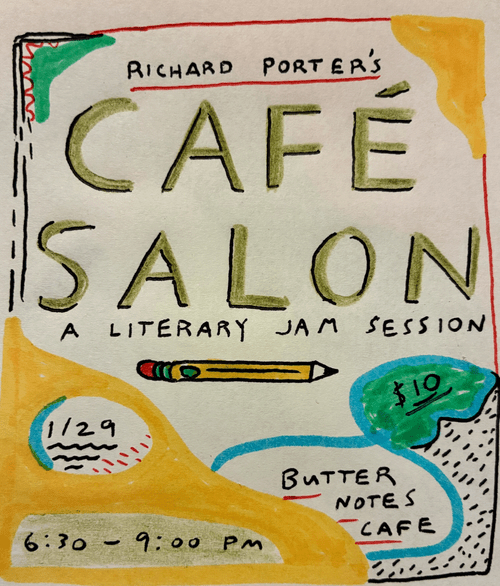 RICHARD PORTER'S
CAFÉ
SALON
A LITERARY JAM SESSION
$10
1/29
BUTTER
NOTES
CAFE
6:30 - 9:00 PM